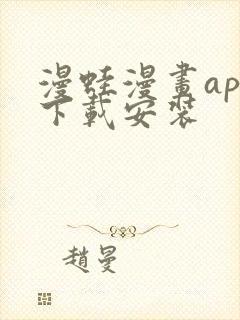 漫蛙漫畫ap
下載安裝
趙曼